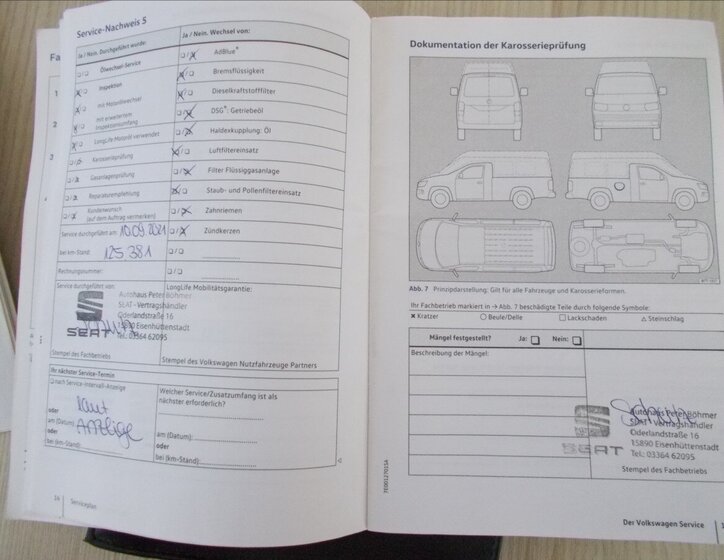 Service-Nachweis 5
Ja / Nein. Durchgeführt wurde:
Ölwechsel-Service
Inspektion
mit Motorölwechsel
mit erweitertem
Inspektionsumfang
LongLife Motoröl verwendet
Karosserieprüfung
Gasanlagenprüfung
Reparaturempfehlung
Kundenwunsch
(auf dem Auftrag vermerken)
Service durchgeführt am: 10.09.2021
bei km-Stand: 125 381
Rechnungsnummer:
Service durchgeführt von:
Autohaus Peter Böhmer
SEAT - Vertragshändler
Oderlandstraße 16
15890 Eisenhüttenstadt
Tel.: 03364 62095
SEAT
Stempel des Fachbetriebs
Ja / Nein. Wechsel von:
AdBlue®
Bremsflüssigkeit
Dieselkraftstofffilter
DSG®: Getriebeöl
Haldexkupplung: Öl
Luftfiltereinsatz
Filter Flüssiggasanlage
Staub- und Pollenfiltereinsatz
Zahnriemen
Zündkerzen
LongLife Mobilitätsgarantie:
Stempel des Volkswagen Nutzfahrzeuge Partners
Ihr nächster Service-Termin
nach Service-Intervall-Anzeige
laut
oder
am (Datum): Anzeige
oder
bei (km-Stand):
Welcher Service/Zusatzumfang ist als
nächster erforderlich?
am (Datum):
oder
bei (km-Stand):
Serviceplan
Fa
1
2
3
Dokumentation der Karosserieprüfung
Abb. 7 Prinzipdarstellung: Gilt für alle Fahrzeuge und Karosserieformen.
Ihr Fachbetrieb markiert in → Abb. 7 beschädigte Teile durch folgende Symbole:
Kratzer
Beule/Delle
Lackschaden
Steinschlag
Mängel festgestellt? Ja: Nein:
Beschreibung der Mängel:
Autohaus Peter Böhmer
SEAT - Vertragshändler
Oderlandstraße 16
15890 Eisenhüttenstadt
Tel.: 03364 62095
SEAT
Stempel des Fachbetriebs
7E0012701SA
Der Volkswagen Service